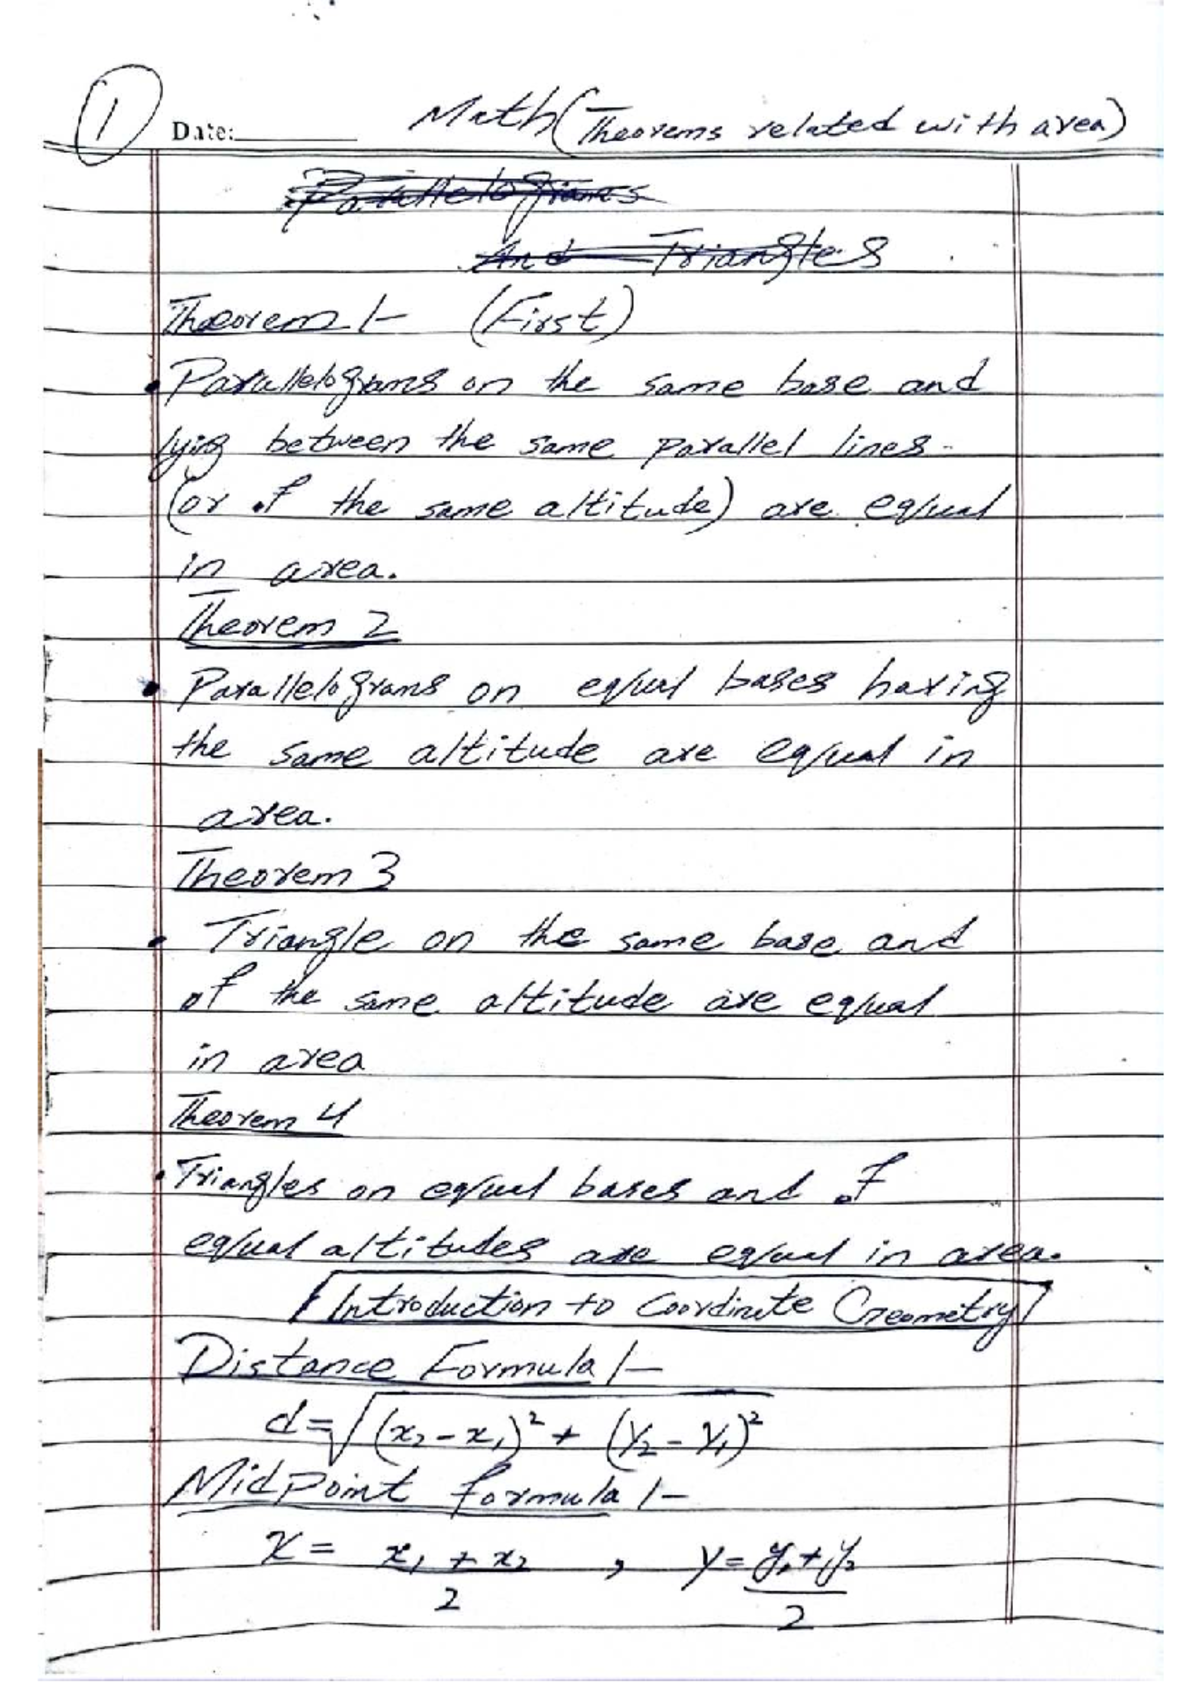 1
Date: Math (Theorems related with area)
Parallelograms
And Triangles
Theorem 1- (First)
• Parallelograms on the same base and
lying between the same parallel lines -
(or of the same altitude) are equal
in area.
Theorem 2
• Parallelograms on equal bases having
the same altitude are equal in
area.
Theorem 3
• Triangle on the same base and
of the same altitude are equal
in area
Theorem 4
• Triangles on equal bases and of
equal altitudes are equal in area.
Introduction to Coordinate Geometry
Distance Formula 1-
d=√(x₂-x₁)² + (y₂-y₁)²
MidPoint formula 1-
x = x₁ + x₂ / 2 , y = y₁ + y₂ / 2